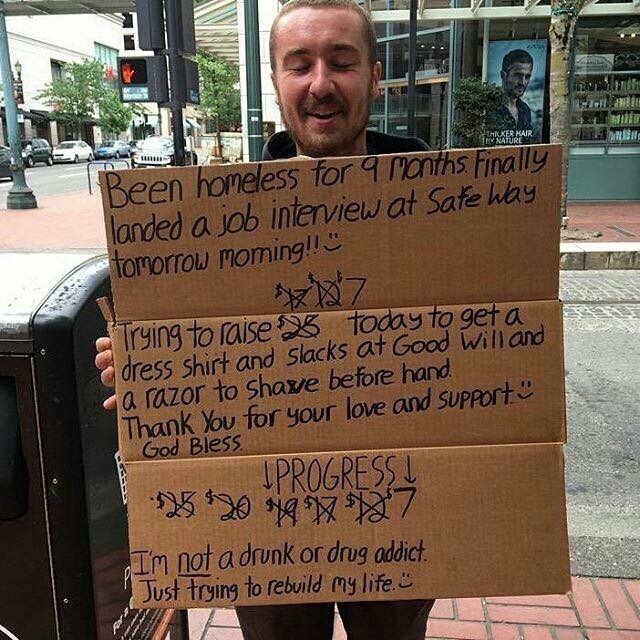 Been homeless for 9 months. Finally
landed a job interview at Safe Way
tomorrow morning!!
$17 $12 $7
Trying to raise $25 today to get a
dress shirt and slacks at Good Will and
a razor to shave before hand.
Thank You for your love and support
God Bless
↓PROGRESS↓
$25 $20 $19 $17 $12 $7
I'm not a drunk or drug addict.
Just trying to rebuild my life.
THICKER HAIR
BY NATURE